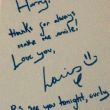 thanks for always
make me smile!
Love you,
Louis
P.S see you tonight,